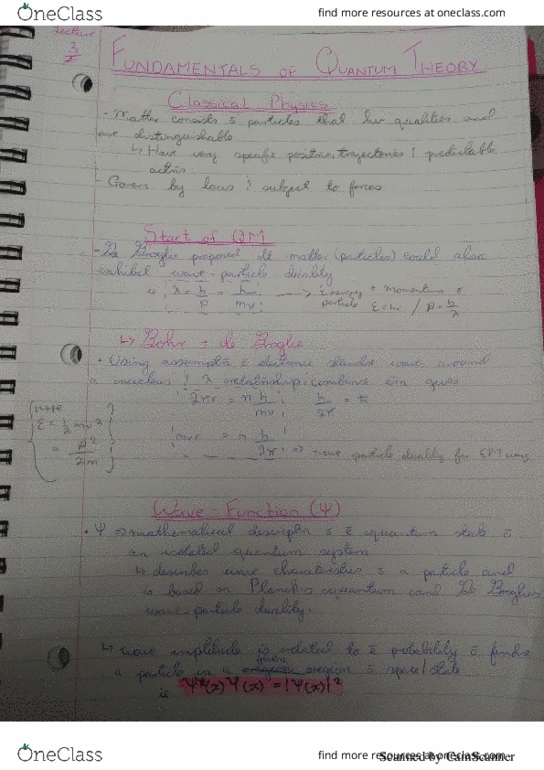 OneClass find more resources at oneclass.com
Lecture
3
FUNDAMENTALS OF QUANTUM THEORY
Classical Physics
- Matter consists particles that hv qualities and
are distinguishable
↳ Have very specific positive, trajectories & predictable
- Govern by laws & subject to forces
Start of QM
- De Broglie proposed tht matter (particles) could also
exhibit wave-particle duality
λ = h/p = h/mv ---> Energy + momentum
particle E=hν / p=h/λ
↳ Bohr + de Broglie
• Using electrons waves around
a nucleus & λ relationship, combine
2πr = n h/mv ; h/2π = ħ
E = 1/2 mv²
= p²/2m
mvr = n h/2π => wave particle duality for
Wave-Function (Ψ)
• Ψ => mathematical quantum state
an isolated quantum system
↳ describes wave a particle and
is based on Planck's quantum and De Broglies
wave-particle duality.
↳ wave amplitude is related to probability
given
a particle in a region space/state
is Ψ*(x)Ψ(x) = |Ψ(x)|²
OneClass find more resources at oneclass.com
Scanned by CamScanner